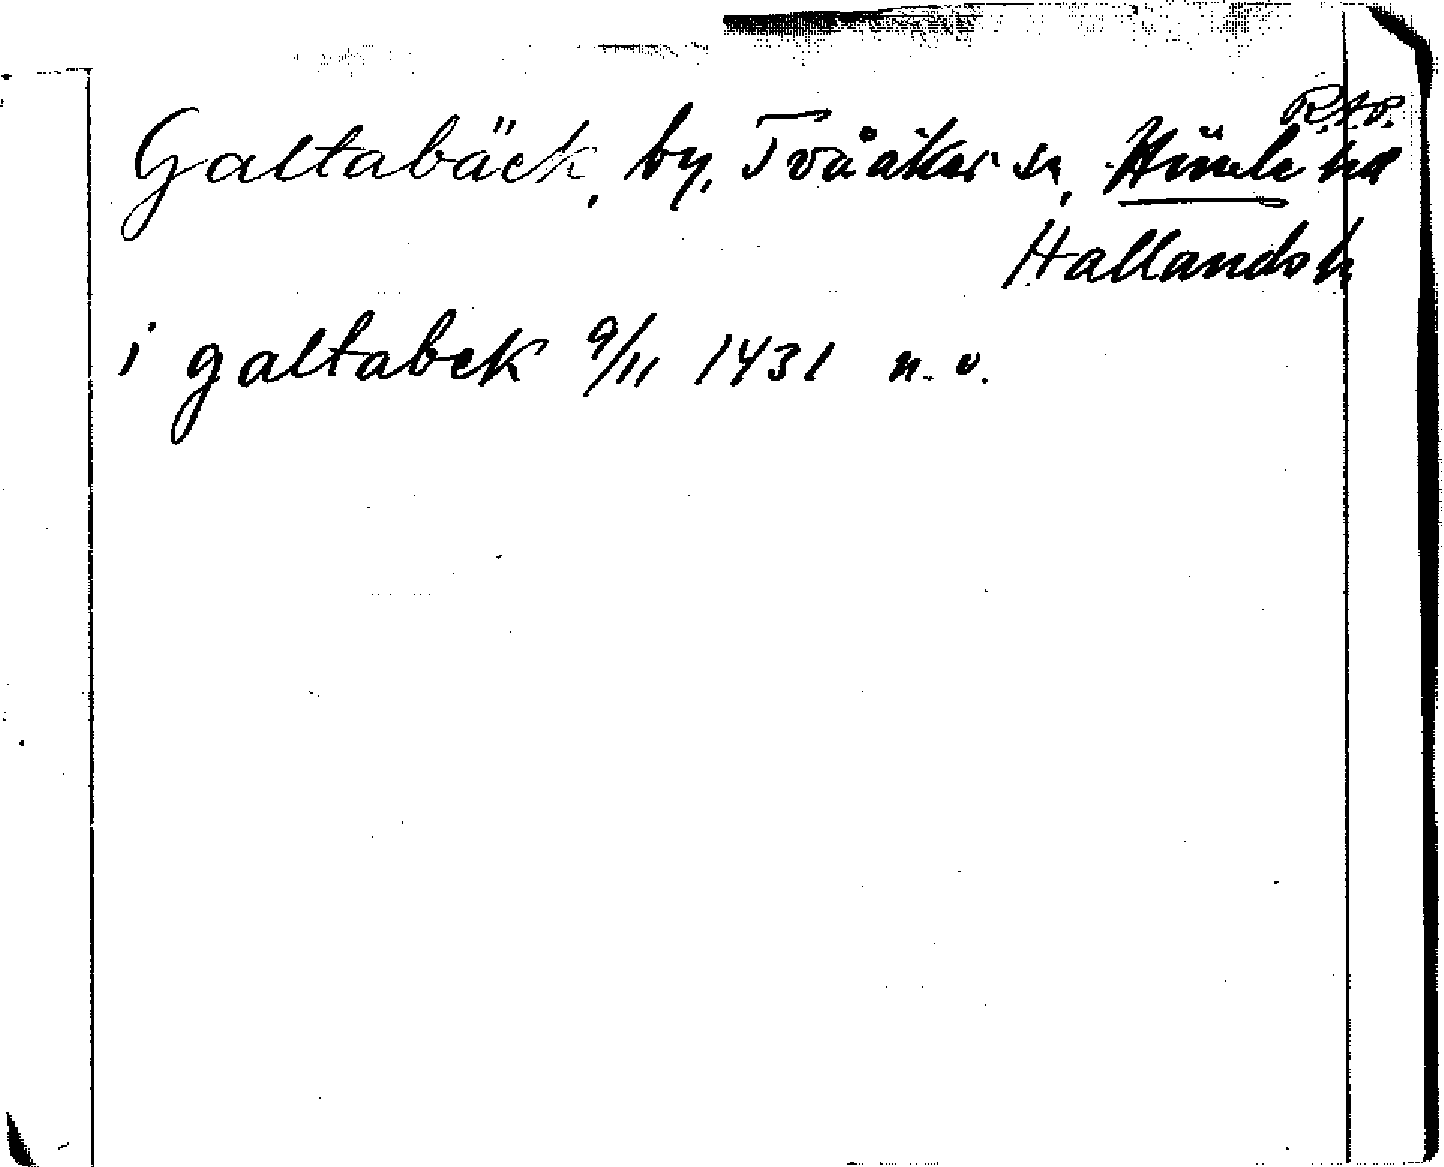 R.A.P.
Galtabäck, by, Tvååker sn, Himle hd
Hallands l.
i galtabek 9/11 1431 n. o.